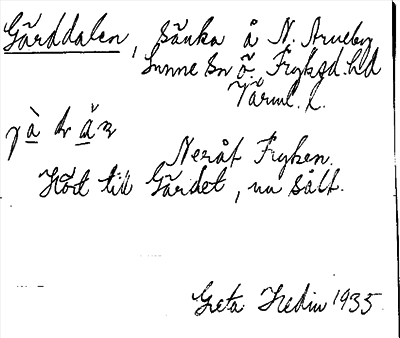 Gårddalen, sänka å N. Arneby
Sunne sn Ö. Fryksd. hd
Värml. l.
Neråt Fryken.
Hört till Gärdet, nu sålt.
Greta Hedin 1935